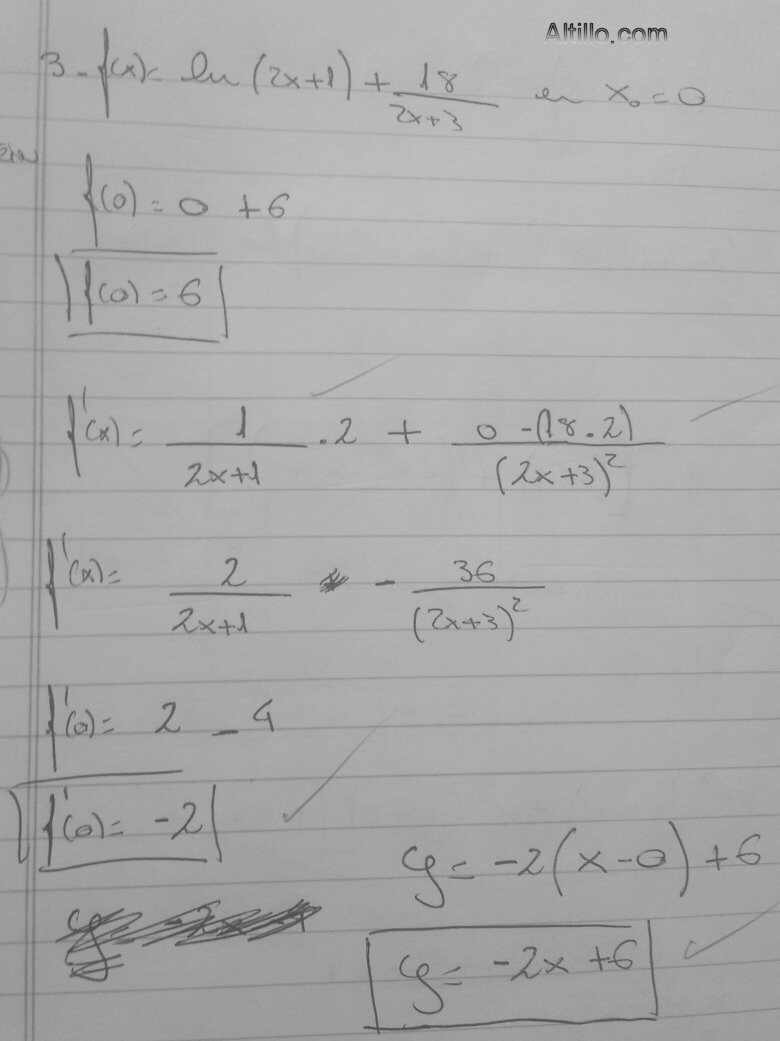 Altillo.com
3- f(x) = ln (2x+1) + 18/(2x+3) en x₀ = 0
f(0) = 0 + 6
f(0) = 6
f'(x) = 1/(2x+1) . 2 + (0 - (18 . 2))/(2x+3)²
f'(x) = 2/(2x+1) - 36/(2x+3)²
f'(0) = 2 - 4
f'(0) = -2
y = -2 (x - 0) + 6
y = -2x + 6